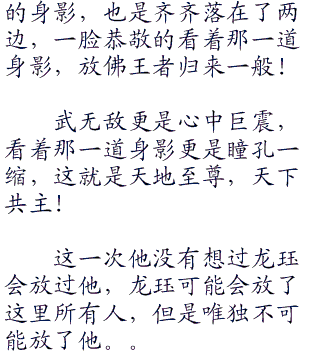 的身影，也是齐齐落在了两
边，一脸恭敬的看着那一道
身影，放佛王者归来一般！
武无敌更是心中巨震，
看着那一道身影更是瞳孔一
缩，这就是天地至尊，天下
共主！
这一次他没有想过龙珏
会放过他，龙珏可能会放了
这里所有人，但是唯独不可
能放了他。。